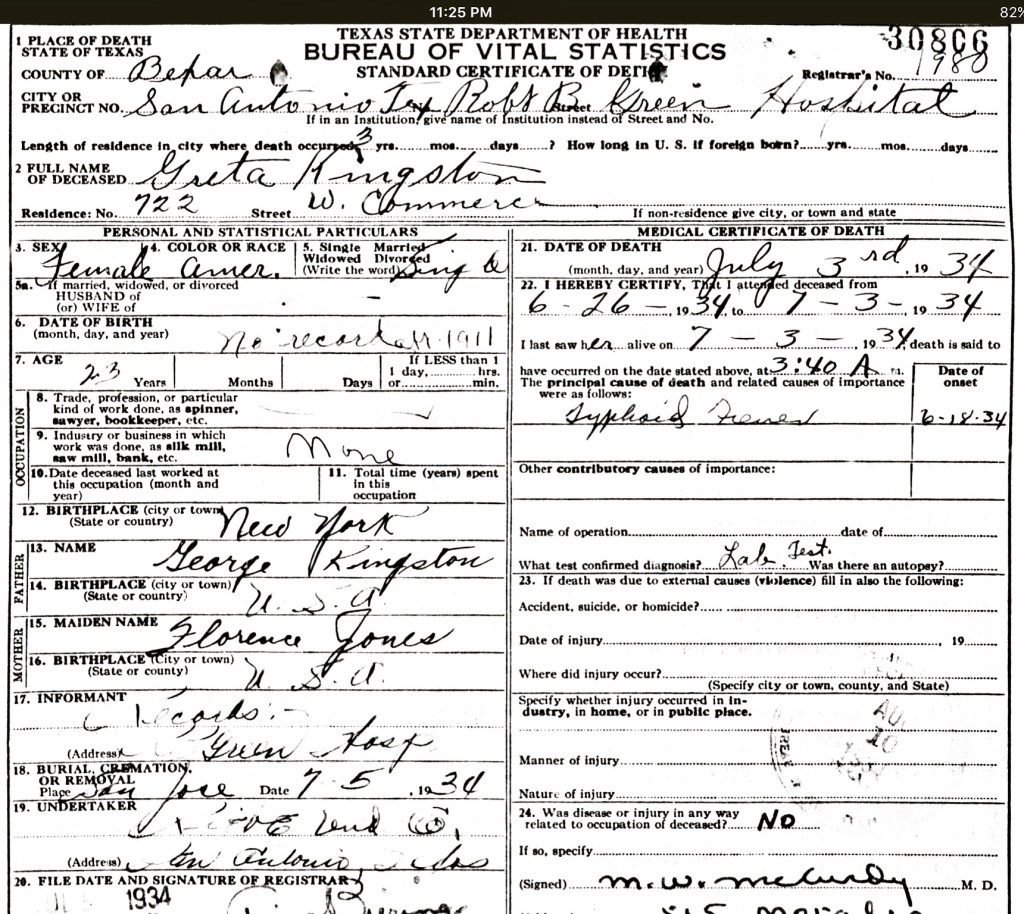 11:25 PM
82%
TEXAS STATE DEPARTMENT OF HEALTH
BUREAU OF VITAL STATISTICS
STANDARD CERTIFICATE OF DEATH
30806
Registrar's No. 1980
1 PLACE OF DEATH
STATE OF TEXAS
COUNTY OF Bexar
CITY OR
PRECINCT NO. San Antonio Tex Robt B. Street Green Hospital
If in an Institution, give name of Institution instead of Street and No.
Length of residence in city where death occurred 3 yrs. mos. days. ? How long in U. S. if foreign born? yrs. mos. days
2 FULL NAME
OF DECEASED Greta Kingston
Residence: No. 722 Street W. Commerce If non-residence give city, or town and state
PERSONAL AND STATISTICAL PARTICULARS
3. SEX Female
4. COLOR OR RACE Amer.
5. Single Married
Widowed Divorced
(Write the word) Single
5a. If married, widowed, or divorced
HUSBAND of
(or) WIFE of -
6. DATE OF BIRTH
(month, day, and year) No record 1911
7. AGE
23 Years Months Days
If LESS than 1
1 day, hrs.
or min.
OCCUPATION
8. Trade, profession, or particular
kind of work done, as spinner,
sawyer, bookkeeper, etc.
9. Industry or business in which
work was done, as silk mill,
saw mill, bank, etc. None
10. Date deceased last worked at
this occupation (month and
year)
11. Total time (years) spent
in this
occupation
12. BIRTHPLACE (city or town)
(State or country) New York
FATHER
13. NAME George Kingston
14. BIRTHPLACE (city or town)
(State or country) U. S. A.
MOTHER
15. MAIDEN NAME Florence Jones
16. BIRTHPLACE (City or town)
(State or country) U. S. A.
17. INFORMANT
Records.-
(Address) Green Hosp
18. BURIAL, CREMATION,
OR REMOVAL
Place San Jose Date 7-5, 1934
19. UNDERTAKER
Und Co.
(Address) San Antonio
20. FILE DATE AND SIGNATURE OF REGISTRAR
1934
MEDICAL CERTIFICATE OF DEATH
21. DATE OF DEATH
(month, day, and year) July 3rd, 1934
22. I HEREBY CERTIFY, That I attended deceased from
6-26-, 1934, to 7-3-, 1934
I last saw her alive on 7-3-, 1934, death is said to
have occurred on the date stated above, at 3:40 A. m.
The principal cause of death and related causes of importance
were as follows:
Date of
onset
Typhoid Fever 6-18-34
Other contributory causes of importance:
Name of operation date of
What test confirmed diagnosis? Lab. Test. Was there an autopsy?
23. If death was due to external causes (violence) fill in also the following:
Accident, suicide, or homicide?
Date of injury , 19
Where did injury occur?
(Specify city or town, county, and State)
Specify whether injury occurred in in-
dustry, in home, or in public place.
AUG
10
Manner of injury
Nature of injury
24. Was disease or injury in any way
related to occupation of deceased? NO
If so, specify
(Signed) M. W. McCurdy M. D.